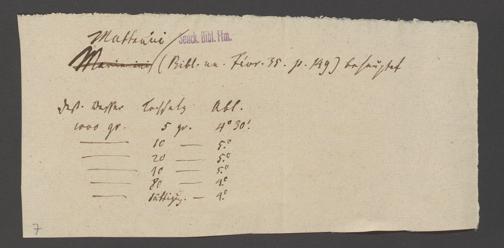 Matteuci
Senck. Bibl. Ffm.
(Bibl. un. Févr. 35. p. 149) behauptet
Dest. Wasser Kochsalz Abl.
1000 gr. 5 gr. 4° 30'.
— 10 — 5°
— 20 — 5°
— 40 — 5°
— 80 — 4°
— — 4°
7